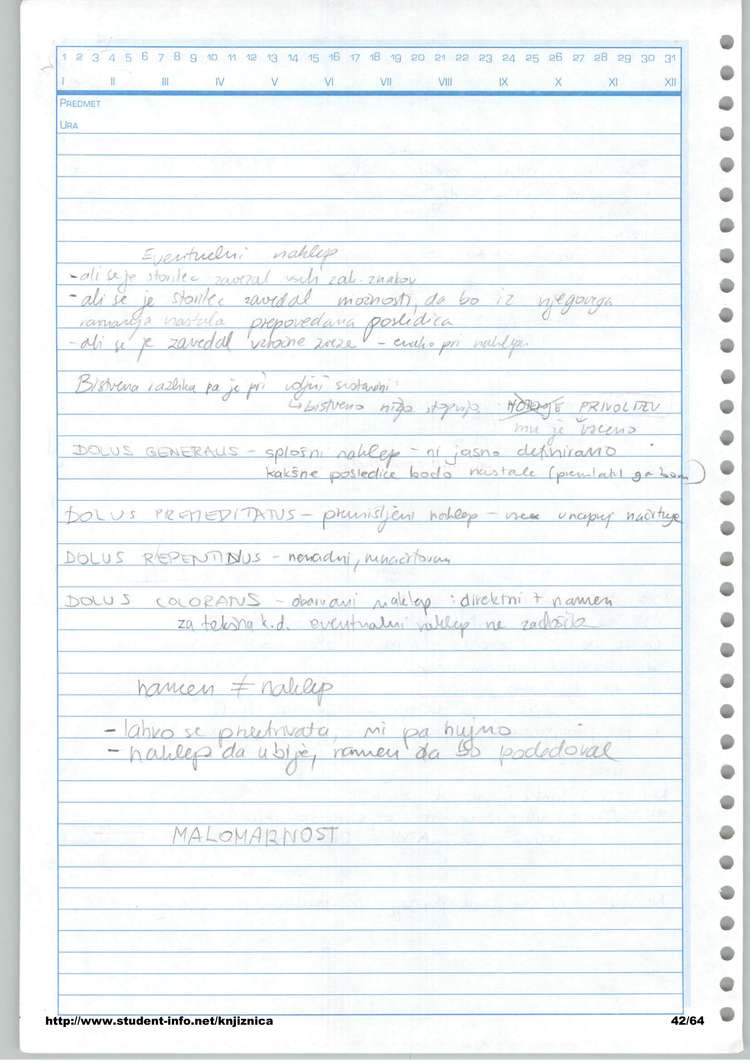 1 2 3 4 5 6 7 8 9 10 11 12 13 14 15 16 17 18 19 20 21 22 23 24 25 26 27 28 29 30 31
I II III IV V VI VII VIII IX X XI XII
PREDMET
URA
Eventuelni naklep
- ali se je storilec zavedal vseh zak. znakov
- ali se je storilec zavedal možnosti, da bo iz njegovga
ravnanja nastala prepovedana posledica
- ali se je zavedal vzročne zveze - enako pri naklepu
Bistvena razlika pa je pri voljni sestavini:
↳ bistveno nižja stopnja PRIVOLITEV
mu je vseeno
DOLUS GENERALIS - splošni naklep - ni jasno definirano
kakšne posledice bodo nastale (premlatil ga bom)
DOLUS PREMEDITATUS - premišljeni naklep - vse vnaprej načrtuje
DOLUS REPENTINUS - nenadni, nenačrtovan
DOLUS COLORATUS - obarvani naklep : direktni + namen
za takšna k.d. eventualni naklep ne zadošča
namen ≠ naklep
- lahko se prekrivata, ni pa nujno
- naklep da ubije, namen da bo podedoval
MALOMARNOST
http://www.student-info.net/knjiznica
42/64